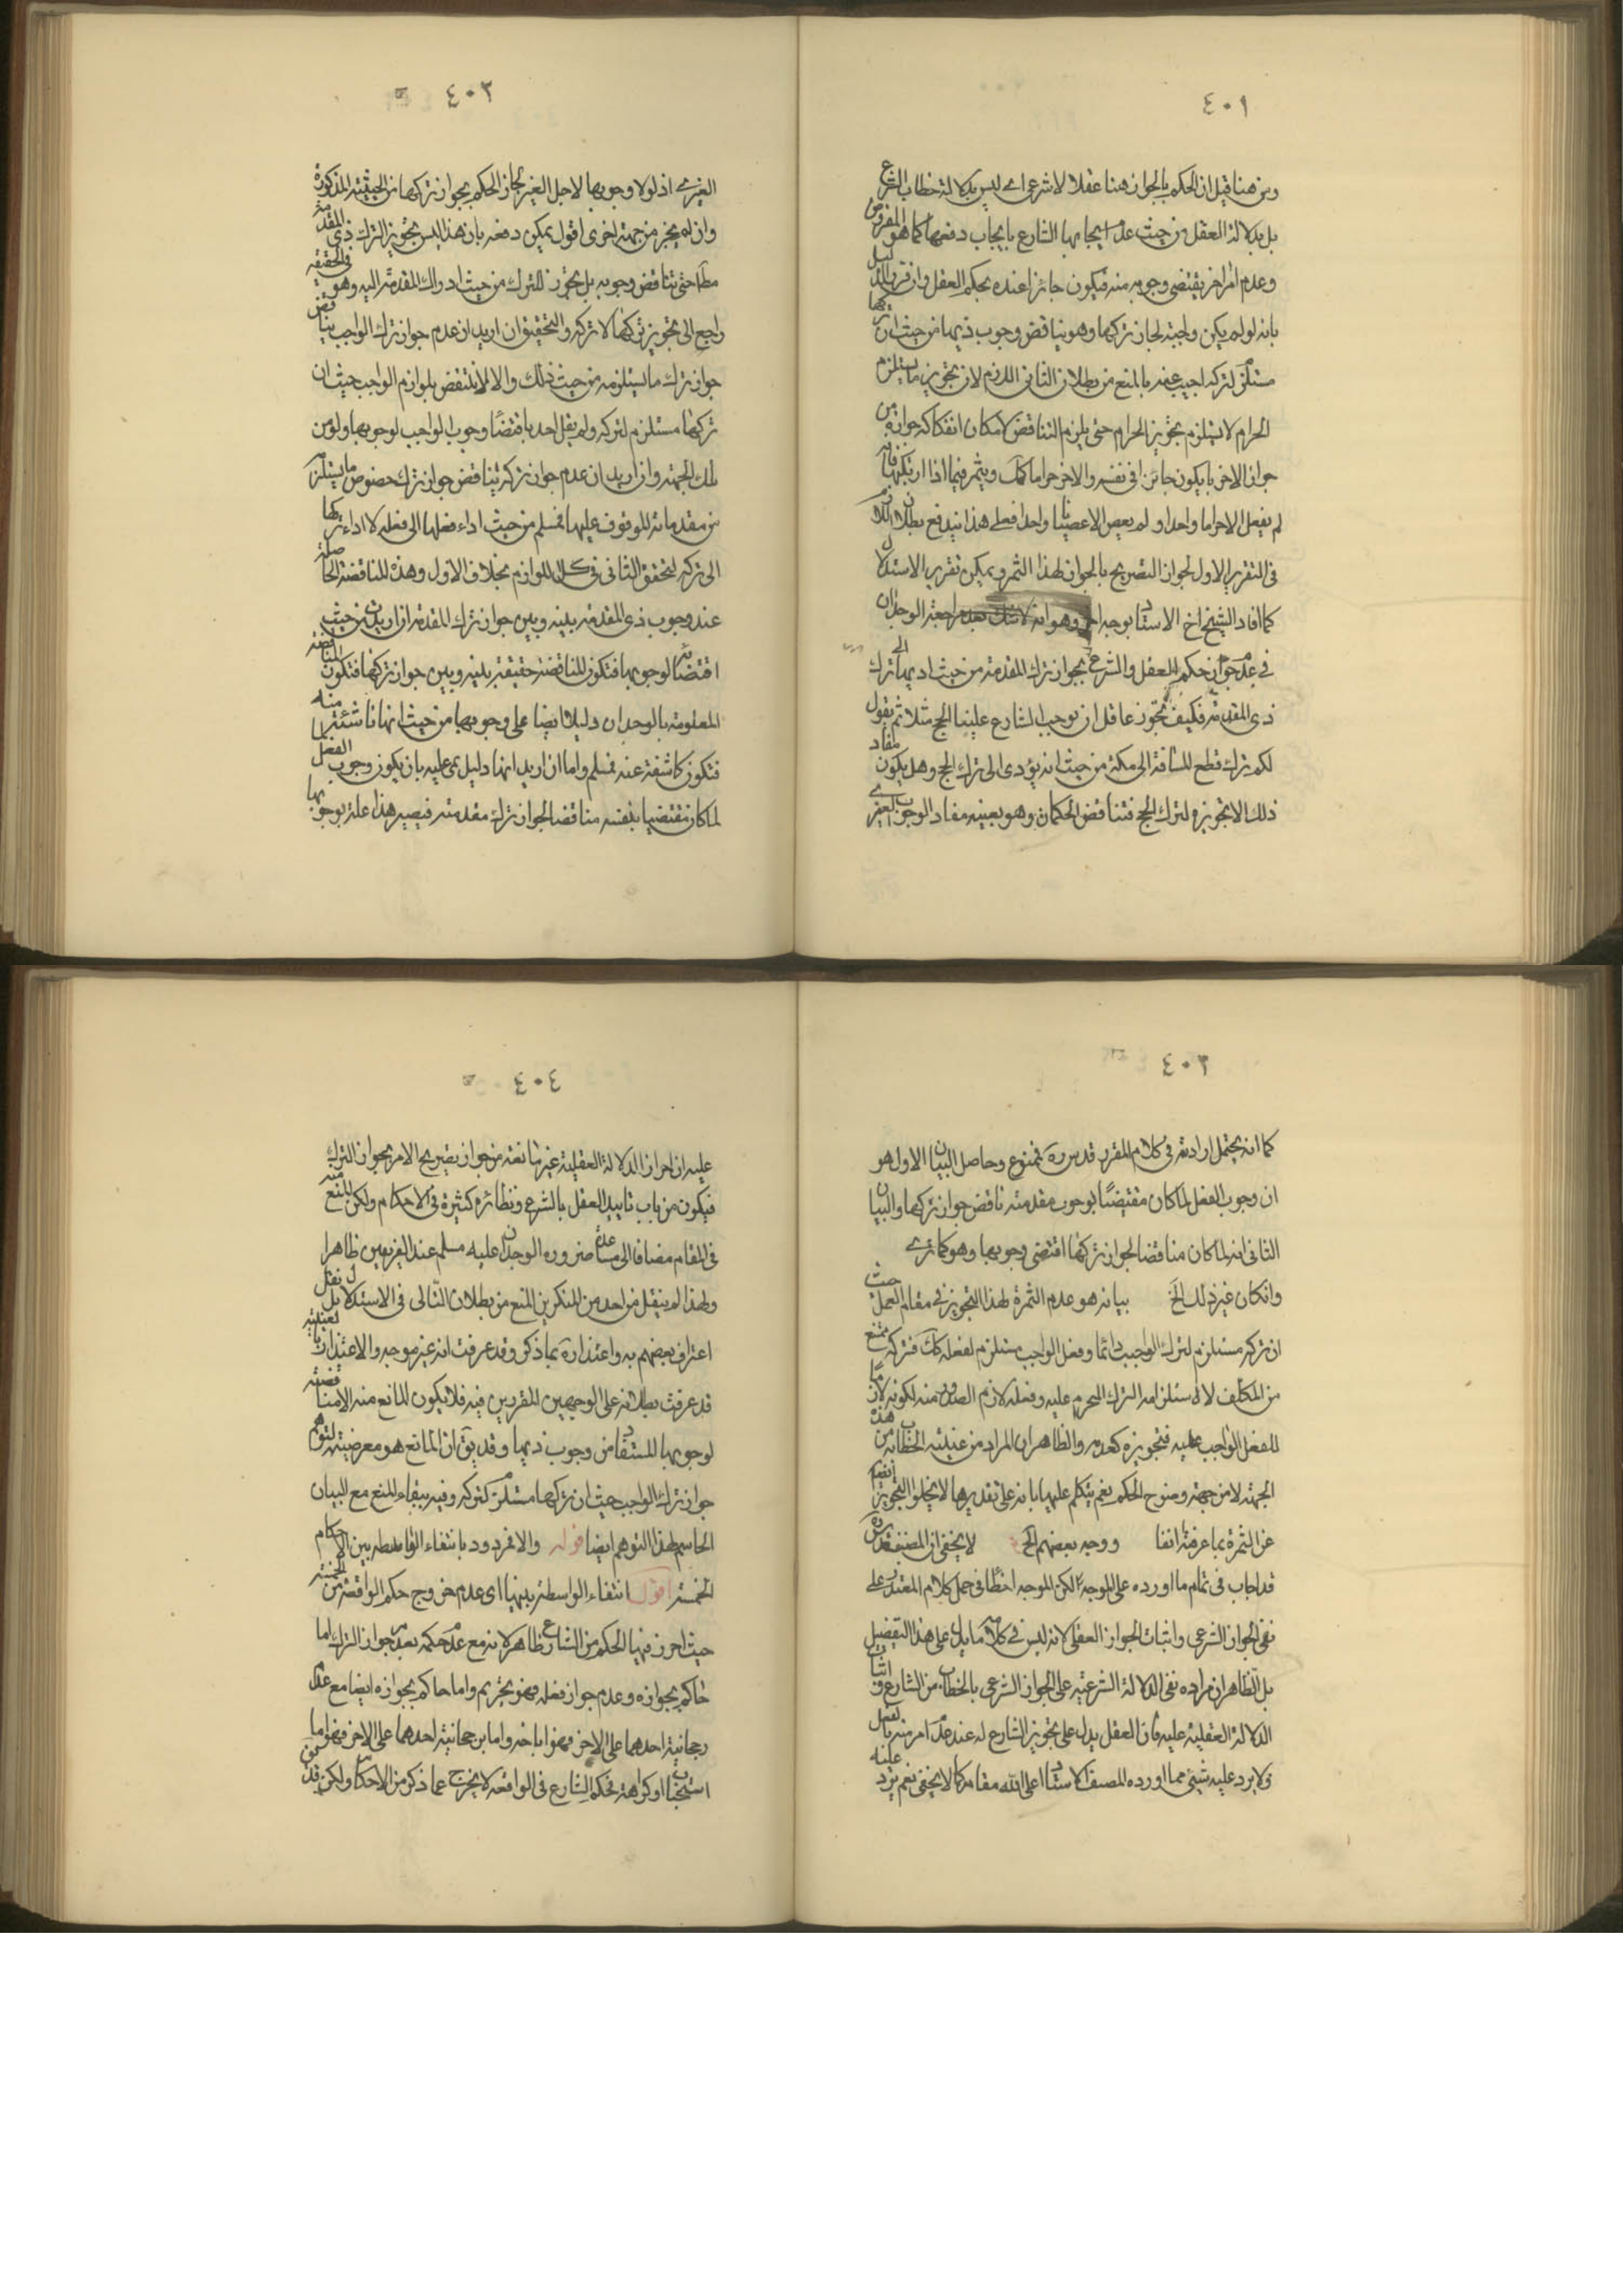 ٤٠١
ومن هنا قيل ان الحكم بالجواز هنا عقلا لا شرعى اى ليس بدلالة خطاب الشرع
بل بدلالة العقل من حيث عدم ايجابها الشارع بايجاب ذيها كما هو المفروض
وعدم امر اخر يقتضى وجوبه منه فيكون جائزا عنده بحكم العقل وان قرر الدليل
بانه لو لم يكن واجبة لجاز تركها وهو يناقض وجوب ذيها من حيث ان تركها
مستلزم لتركه اجيب عنه بالمنع من بطلان الثانى اللازم لان تجويز ما يستلزم
الحرام لا يستلزم تجويز الحرام حتى يلزم التناقض لامكان انفكاك جوازه من
جواز الاخر بان يكون جائزا فى نفسه والاخر حراما كك ويثمر فيما اذا ارتكبها فانه
لم يفعل الا حراما واحدا ولم يعص الا عصيانا واحدا فعلى هذا يندفع بطلان اللازم
فى التقرير الاول لجواز التصريح بالجواز لهذا الثمر ويمكن تقرير الاستدلال
كما افاد الشيخ اخ الاستاد بوجه اخر وهو انه لا شك بعد مراجعة الوجدان
فى عدم جواز حكم العقل والشرع بجواز ترك المقدمة من حيث اديها الى ترك
ذى المقدمة فكيف يجوز عاقل ان يوجب الشارع علينا الحج مثلا ثم يقول
لكم ترك قطع المسافة الى مكة من حيث انه يؤدى الى ترك الحج وهل يكون مفاد
ذلك الا تجويزه لترك الحج فتناقض الحكمان وهو بعينه مفاد الوجوب الغيرى
٤٠٢
الغيرى اذ لولا وجوبها لاجل الغير لجاز الحكم بجواز تركها من الحيثية المذكورة
وان لم يجز من جهة اخرى اقول يمكن دفعه بان هذا ليس تجويز الترك ذى المقدمة
مطلقا حتى يناقض وجوبه بل تجويز للترك من حيث ادراك المقدمة اليه وهو فى الحقيقة
راجع الى تجويز تركها لا تركه والتحقيق ان اريد ان عدم جواز ترك الواجب يناقض
جواز ترك ما يستلزمه من حيث ذلك والا لانتقض بلوازم الواجب حيث ان
تركها مستلزم لتركه ولم يقل احد باقتضاء وجوب الواجب لوجوبها ولو من
تلك الجهة وان اريد ان عدم جواز تركه يناقض جواز ترك خصوص ما يستلزم
من مقدماته للوقوف عليها فمسلم من حيث اداء فعلها الى فعله لا اداء تركها
الى تركه لتحقق الثانى فى كل اللوازم بخلاف الاول وهذه المناقضة الحاصلة
عند وجوب ذى المقدمة بينه وبين جواز ترك المقدمة ان اريد من حيث
اقتضائه لوجوبها فتكون المناقضة حقيقة بينه وبين جواز تركها فتكون المناقضة
المعلومة بالوجدان دليلا ايضا على وجوبها من حيث انها ناشئة منه
فتكون كاشفة عنه فمسلم واما ان اريد انها دليل لمى عليه بان يكون وجوب الفعل
لما كان مقتضيا بنفسه مناقضا لجواز ترك مقدمته فيصير هذا علة لوجوبها
٤٠٣
كما انه يحتمل ارادته فى كلام المقرر قدس سره فممنوع وحاصل البيان الاول هو
ان وجوب الفعل لما كان مقتضيا لوجوب مقدمته ناقض جواز تركها والبيان
الثانى انه لما كان مناقضا لجواز تركها اقتضى وجوبها وهو كما ترى
وان كان غير ذلك الخ بيانه هو عدم الثمرة لهذا التجويز فى مقام العمل حيث
ان تركه مستلزم لترك الواجب دائما وفعل الواجب مستلزم لفعله كك فتركه ممتنع
من المكلف لاستلزامه الترك المحرم عليه وفعله لازم الصدور منه لكونه لازما
للفعل الواجب عليه فتجويزه كعدمه والظاهر ان المراد من عينية الخطاب من هذه
الجهة لا من جهة وضوح الحكم نعم يتكلم عليها بانه على تقديرها لا يخلو التجويز ايضا
عن الثمرة بما عرفته انفا ووجه بعضهم الخ لا يخفى ان المصنف قدس سره
قد اجاب فى تمام ما اورده على الموجه لكن الموجه اخطأ فى حمل كلام المعتذر على
نفى الجواز الشرعى واثبات الجواز العقلى لانه ليس فى كلامه ما يدل على هذا التفصيل
بل الظاهر ان مراده نفى الدلالة الشرعية على الجواز الشرعى بالخطاب من الشارع واثبات
الدلالة العقلية عليه فان العقل يدل على تجويز الشارع له عند عدم امر منه بالفعل
ولا يرد عليه شيئ مما اورده المصنف الاستاد اعلى الله مقامه كما لا يخفى نعم يرد عليه
٤٠٤
عليه ان احراز الدلالة العقلية غير مانعة من جواز تصريح الامر بجواز الترك
فيكون من باب تاييد العقل بالشرع ونظائره كثيرة فى الاحكام ولكن المنع منه
فى المقام مضافا الى مساعدة ضرورة الوجدان عليه مسلم عند الفريقين ظاهرا
ولهذا لم ينقل من احد من المنكرين المنع من بطلان التالى فى الاستدلال بل نقل
اعتراف بعضهم به واعتذاره بما ذكر وقد عرفت انه غير موجه والاعتذار بالعينية
قد عرفت بطلانه على الوجهين المقررين فيه فلا يكون المانع منه الا مناقضته
لوجوبها المستفاد من وجوب ذيها وقد يق ان المانع هو معرضيته لتوهم
جواز ترك الواجب حيث ان تركها مستلزم كتركه وفيه بقاء المنع مع البيان
الحاسم لهذا التوهم ايضا قوله والا فمردود بانتفاء الواسطة بين الاحكام
الخمسة اقول انتفاء الواسطة بينها اى عدم خروج حكم الواقعة من الخمسة
حيث احرز فيها الحكم من الشارع ظاهر لانه مع عدم حكمه بعدم جواز الترك اما
حاكم بجوازه وعدم جواز فعله فهو تحريم واما حاكم بجوازه ايضا مع عدم
رجحانية احدهما على الاخر فهو اباحة واما برجحانية احدهما على الاخر فهو اما
استحباب او كراهة فحكم الشارع فى الواقعة لا يخرج عما ذكر من الاحكام ولكن قد